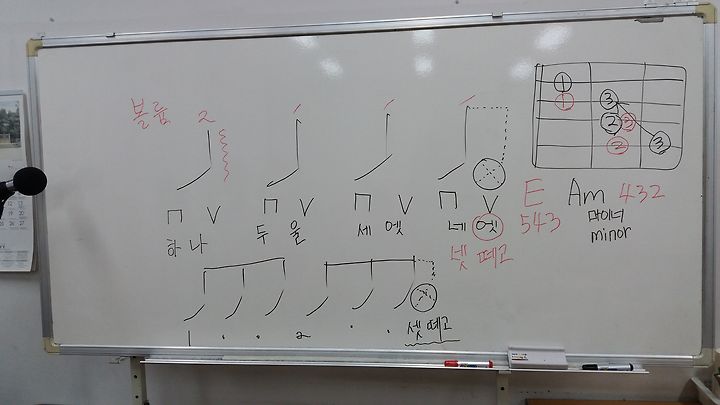 볼륨 2 / / /
하 나 두 울 세 엣 네 엣
넷 떼고
1 · · 2 · · 셋 떼고
1
1
3
2 3
2 3
E Am 432
543 마이너
minor